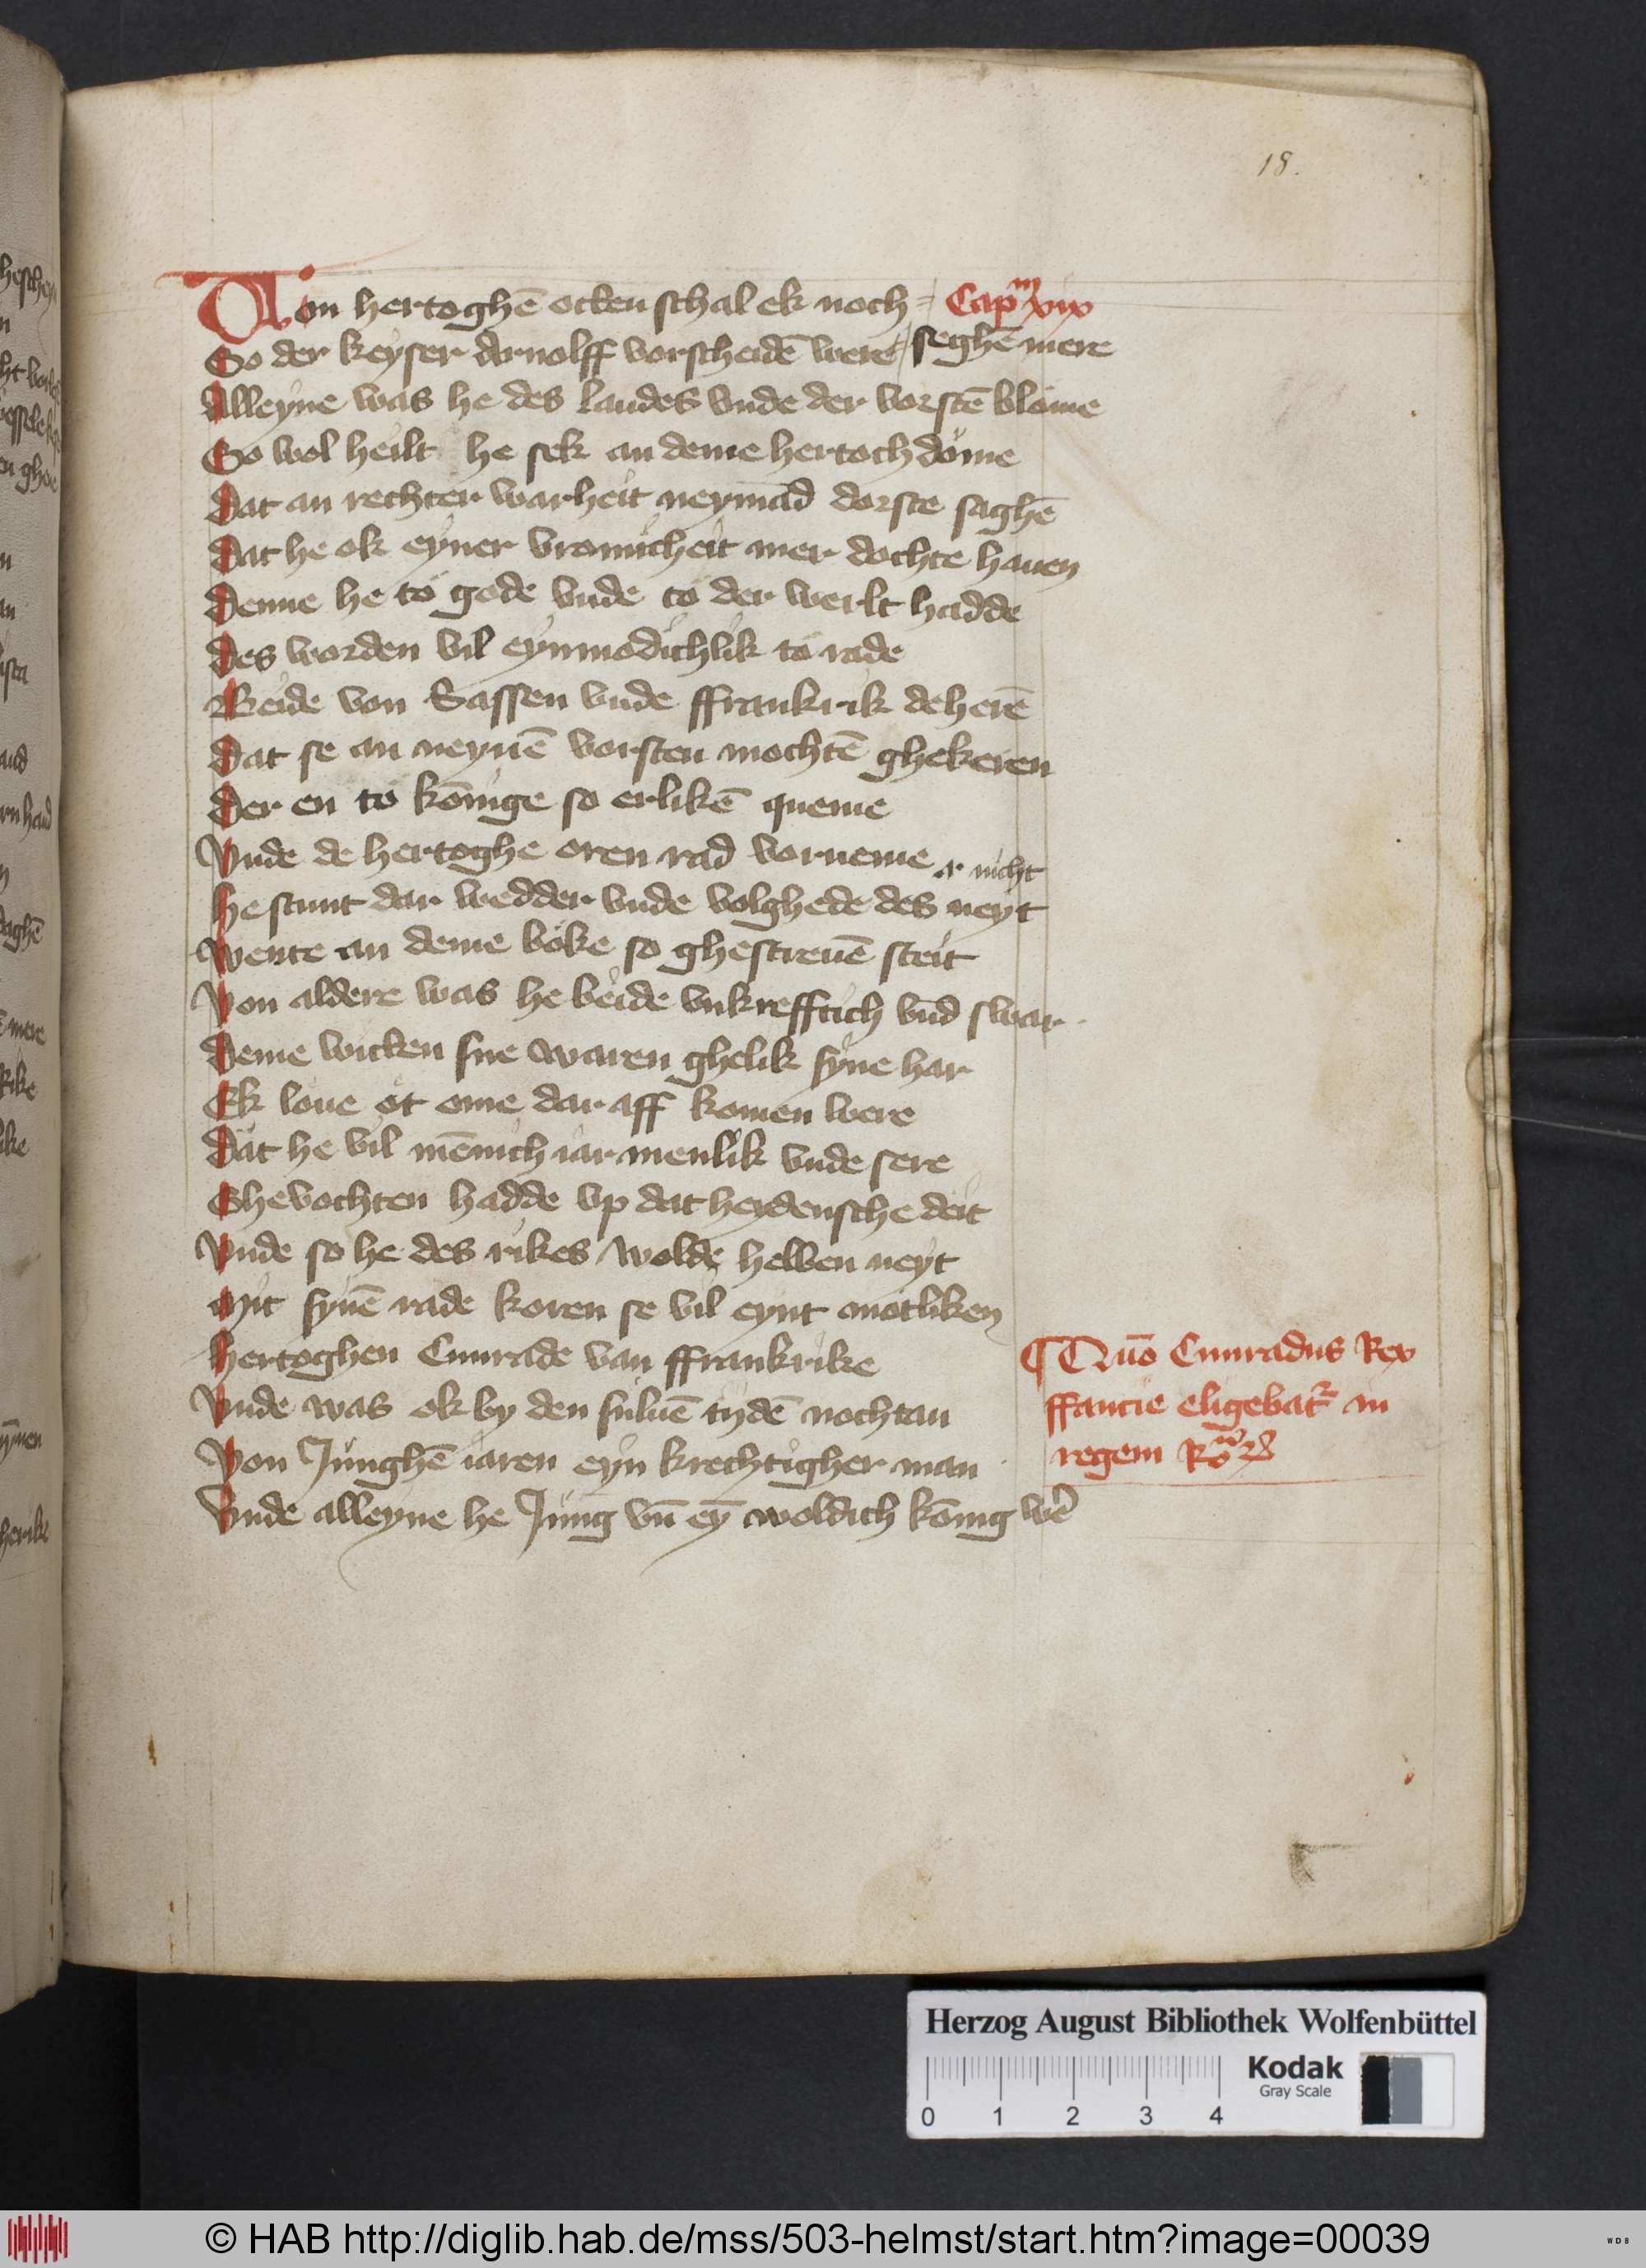 18.
Von hertoghē ocken schal ek noch = Capm xix
So der keyser Arnolff vorscheidē were / seghē mere
Alleyne was he des landes vnde der vorstē blome
So wol heilt he sek an deme hertoch dome
Dat an rechter warheit neymād dorste saghē
Dat he ok eyner vromicheit mer dochte hauen
Denne he to gode vnde to der werlt hadde
Des worden vil eynmodichlik to rade
Beide von Sassen vnde ffrankrik de herē
Dat se an neynē vorsten mochtē ghekeren
Der en to kōnige so erlikē queme
Vnde de hertoghe oren rad vorneme
r nicht
he stunt dar wedder vnde volghede des neyt
Wente an deme boke so ghescreuē steit
Von aldere was he beide vnkrefftich vnd swar
Deme witken sne waren ghelik syne har
Ek loue ot ome dar aff komen were
Dat he vil mēnich iar menlik vnde sere
Ghevochten hadde vp dat heydensche deit
Vnde so he des rikes wolde hebben neyt
Myt synē rade koren se vil eynt motliken
hertoghen Cunrade van ffrankrike
Vnde was ok by den suluē tydē nochtan
Von Junghē iaren eyn krechtigher man
Vnde alleyne he Jung vn̄ ey̅ woldich kōnig we᷑
¶ Quō Cunradus Rex
ffancie eligebat᷑ in
regem Ro
Herzog August Bibliothek Wolfenbüttel
0 1 2 3 4
Kodak
Gray Scale
© HAB http://diglib.hab.de/mss/503-helmst/start.htm?image=00039
WDB